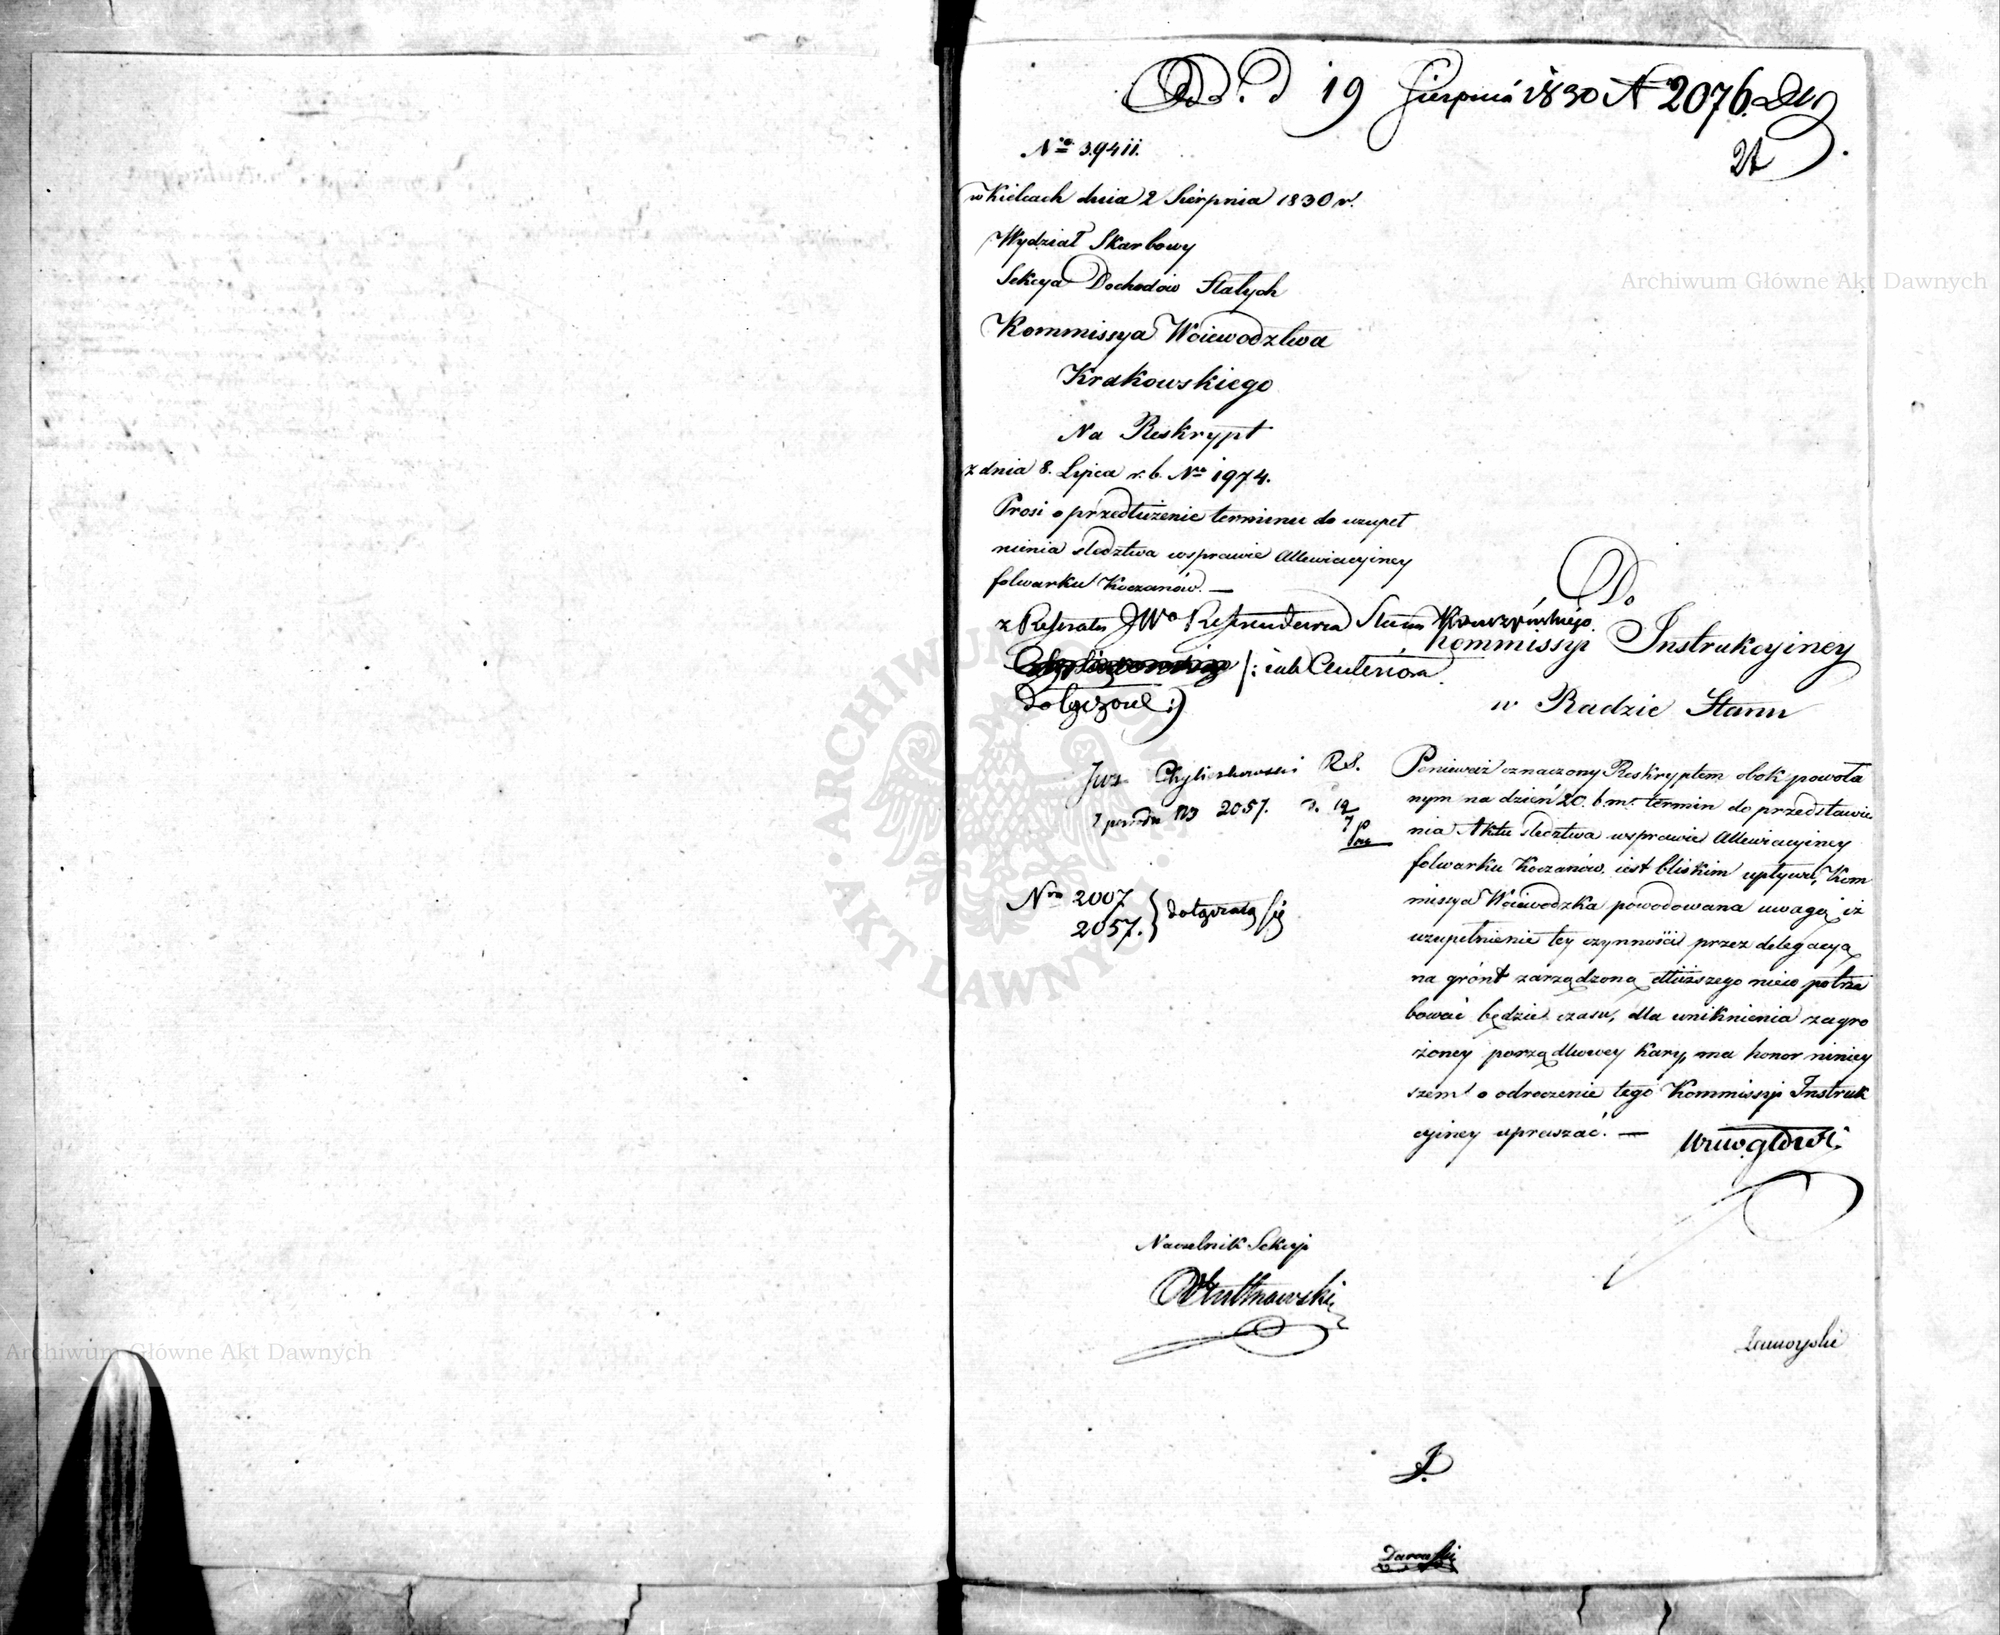 d 19 Sierpnia 1830 N 2076.
21
Nro 39411.
w Kielcach dnia 2 Sierpnia 1830 r.
Wydział Skarbowy
Sekcya Dochodów Stałych
Kommissya Woiewodztwa
Krakowskiego
Na Reskrypt
z dnia 8. Lipca r. b. Nro 1974.
Prosi o przedłużenie terminu do uzupeł
nienia sledztwa wsprawie Allewiacyiney
folwarku Koczanów. —
z Referatu JWo Referendarza Stanu
/: interiora
dołączone :)
Do
Kommissyi Instrukcyiney
w Radzie Stanu
Chyliczkowski R. S.
N 2057. d. 12/7
Nro 2007
2057. } dołączaią się
Ponieważ oznaczony Reskryptem obok powoła
nym na dzień 20. b. m. termin do przedstawie
nia Aktu sledztwa wsprawie Allewiacyiney
folwarku Koczanów. iest bliskim upływu, Kom
missya Woiewodzka powodowana uwagą iż
uzupełnienie tey czynności przez delegacyą
na grónt zarządzoną dłuższego nieco potrze
bować będzie czasu, dla uniknienia zagro
żoney porządkowey kary, ma honor niniey
szem o odroczenie tego Kommissyi Instruk
cyiney upraszać. —
Naczelnik Sekcyi
Zamoyski
Darowski
Archiwum Główne Akt Dawnych
Archiwum Główne Akt Dawnych
ARCHIWUM GŁÓWNE
AKT DAWNYCH